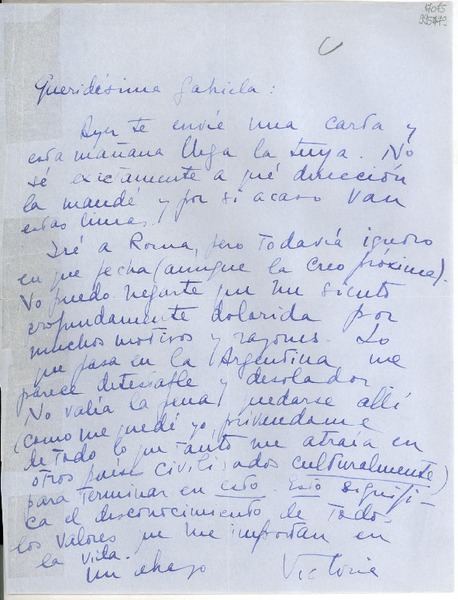 Queridísima Gabriela:
Ayer te envié una carta y
esta mañana llega la tuya. No
sé exactamente a qué dirección
la mandé y por si acaso van
estas lineas.
Iré a Roma, pero todavía ignoro
en que fecha (aunque la creo próxima).
No puedo negarte que me siento
profundamente dolorida por
muchos motivos y razones. Lo
que pasa en la Argentina me
parece detestable y desolador.
No valía la pena quedarse allí
(como me quedé yo, privandome
de todo lo que tanto me atraía en
otros paises civilizados culturalmente)
para terminar en esto. Esto signifi-
ca el desconocimiento de todos
los valores que me importan en
la vida.
Un abrazo Victoria